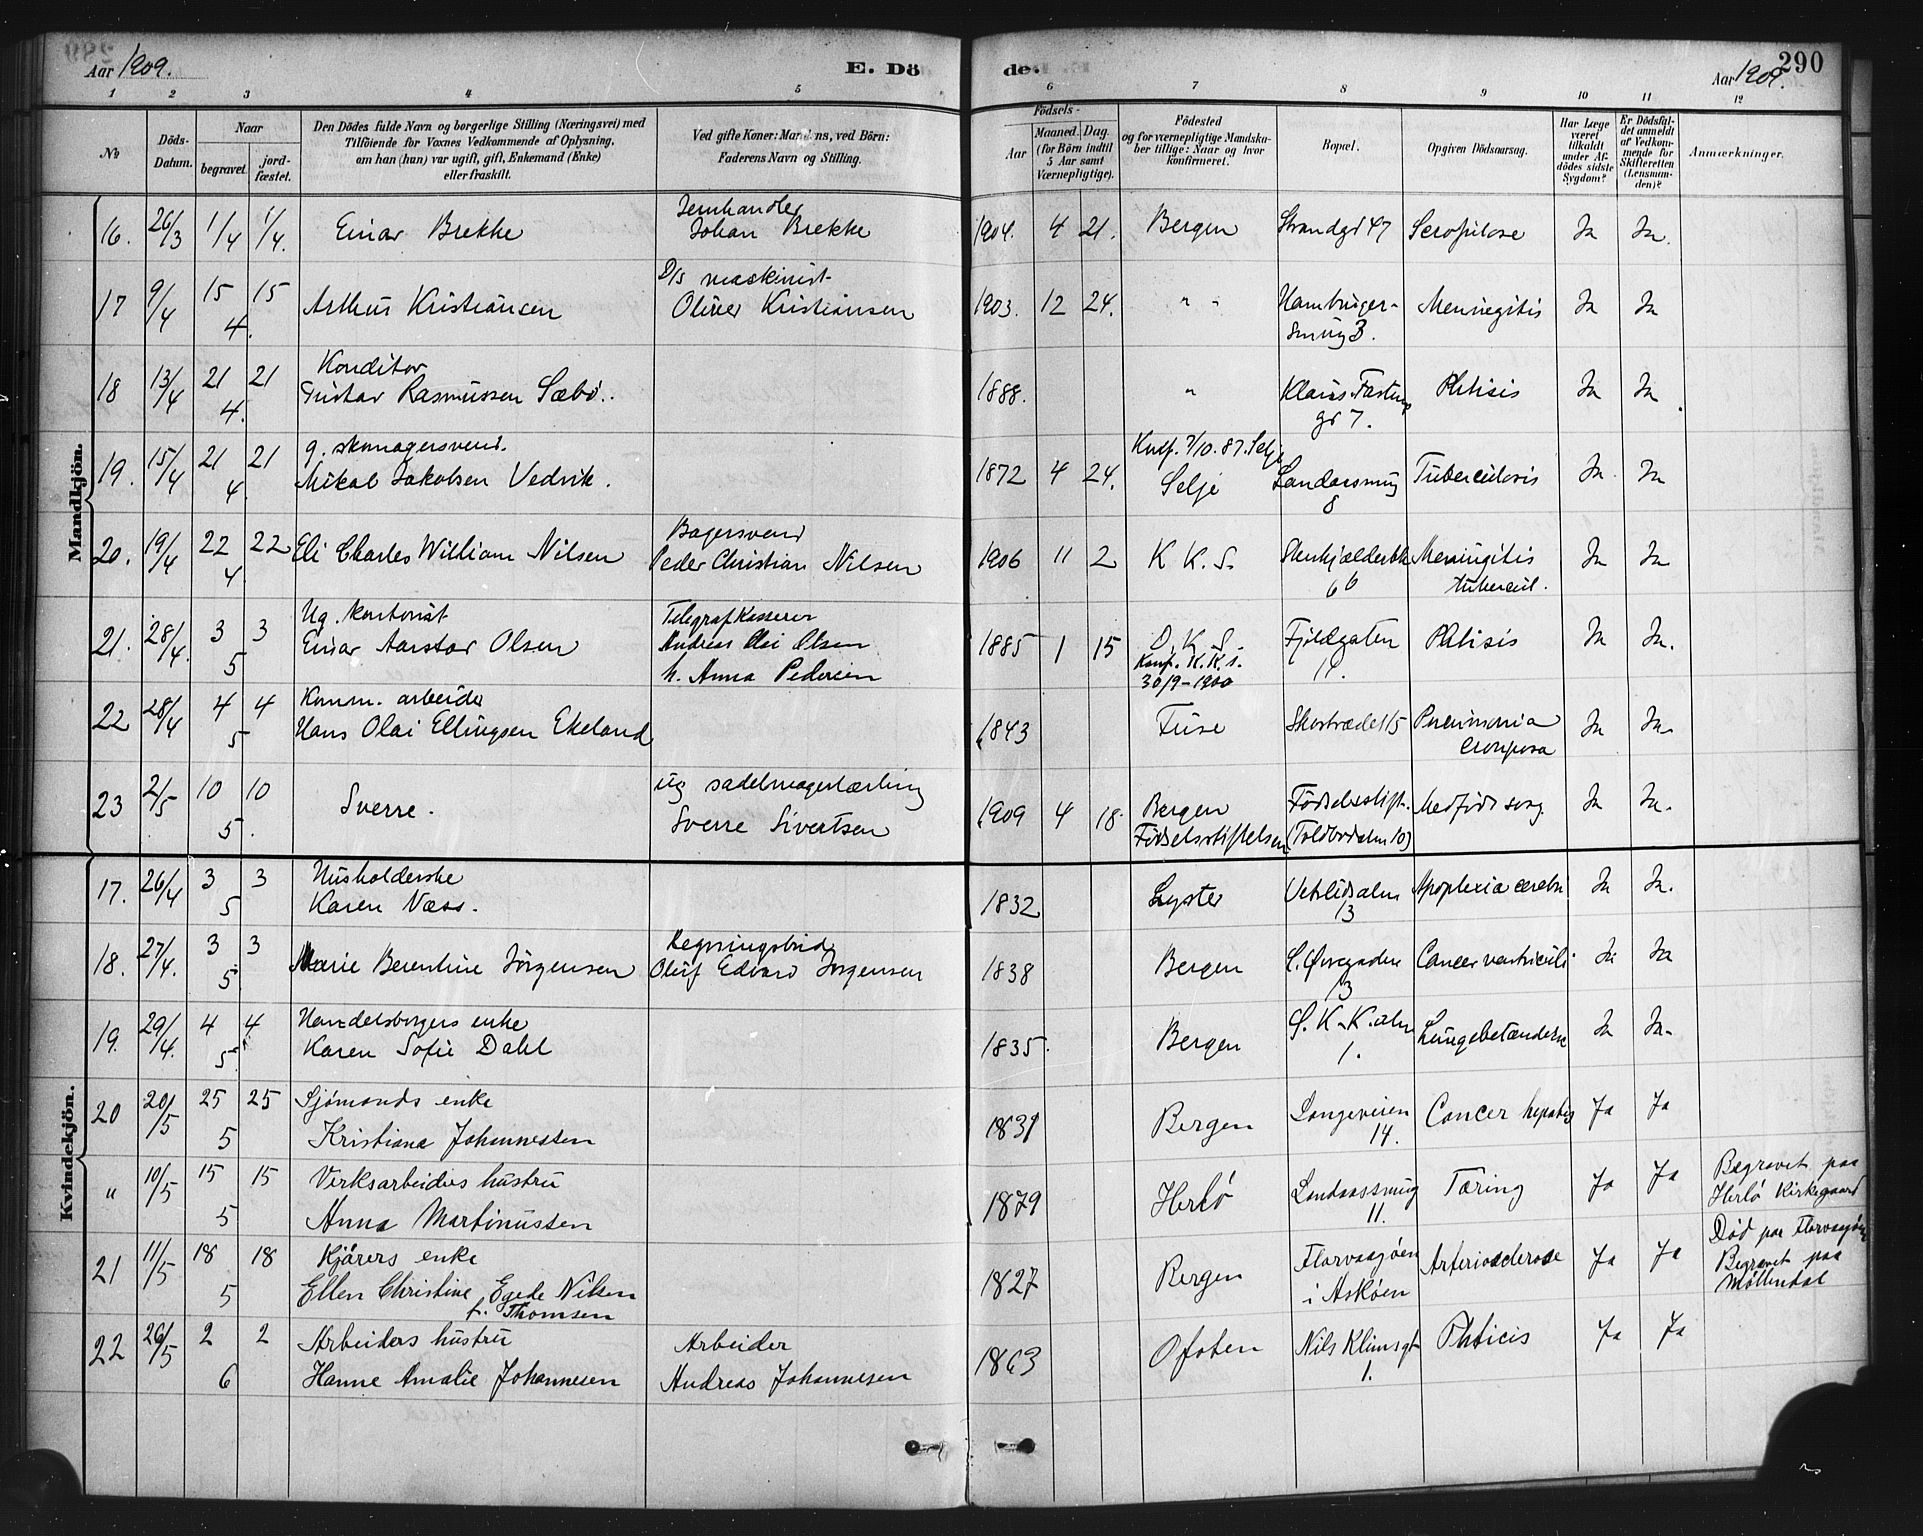 Aar 1909.
E. Dö
de.
Aar 1909.
290
1 2 3 4 5 6 7 8 9 10 11 12
No
Döds-Datum.
Naar
begravet.
jord-fæstet.
Den Dödes fulde Navn og borgerlige Stilling (Næringsvei) med
Tilföiende for Voxnes Vedkommende af Oplysning,
om han (hun) var ugift, gift, Enkemand (Enke)
eller fraskilt.
Ved gifte Koner: Mandens, ved Börn:
Faderens Navn og Stilling.
Födsels-
Aar
Maaned.
Dag.
(for Börn indtil
5 Aar samt
Værnepligtige).
Födested
og for værnepligtige Mandska-
ber tillige: Naar og hvor
konfirmeret.
Bopæl.
Opgiven Dödsaarsag.
Har Læge
været
tilkaldt
under Af-
dödes sidste
Sygdom?
Er Dödsfal-
det anmeldt
af Vedkom-
mende for
Skifteretten
(Lensman-
den)?
Anmærkninger.
Mandkjön.
Jernhandler
16. 26/3 1/4 1/4. Einar Brekke Johan Brekke 1904. 4 21. Bergen Strandgd 47 Scrofulose Ja Ja.
D/s maskinist
17 9/4 15 15 4. Arthur Kristiansen Oliver Kristiansen 1903. 12 24. " " Hamburger-
smug 3. Meningitis Ja Ja
Konditor
18 13/4 21 21 4. Gustav Rasmussen Sæbö. 1888. " Klaus Fastings
gd 7. Phtisis Ja Ja.
g. skomagersvend.
19. 15/4 21 21 4. Mikal Jakobsen Vedvik. 1872 4 24. Knf. 7/10.87. Selje
Selje Landaassmug
8 Tuberculosis Ja Ja
Bagersvend
20. 19/4 22 22 4 Eli Charles William Nilsen Peder Christian Nilsen 1906 11 2 K K. S. 66 Meningitis
tubercul. Ja Ja
Ug. kontorist Telegrafkasserer
21. 28/4. 3 3 5 Einar Aarstar Olsen Andreas Olai Olsen
h. Anna Pedersen 1885 1 15 D. K. S.
Konf. K. K. s.
30/9-1900 Fjeldgaten
11. Phtisis Ja Ja.
Komm. arbeider
22 28/4 4 4 5 Hans Olai Ellingsen Ekeland 1843 Fuse Skostrædet 15 Pneumonia
crouposa Ja Ja.
ug sadelmagerlærling
23 2/5 10 10 5. Sverre. Sverre Sivertsen 1909 4 18. Bergen
Födselsstiftelsen Födselsstift.
(Toldbodalm 10) Medfödt svag. Ja Ja.
Kvindekjön.
Husholderske
17. 26/4 3 3 5 Karen Næss. 1832 Lyster Vetrlidsalm
13 Apoplexia cerebri Ja Ja.
18. 27/4. 3 3 5. Marie Berentine Jörgensen Regningsbud
Oluf Edvard Jörgensen 1838 Bergen L. Øvregaden
13 Cancer ventriculi Ja Ja
Handelsborgers enke
19. 29/4. 4 4 5. Karen Sofie Dahl 1835. Bergen S. K. K. alm
1. Lungebetændelse Ja Ja.
Sjömands enke
20 20/5 25 25 5 Kristiane Johannessen 1831 Bergen Langeveien
14. Cancer hepatis Ja Ja
Verksarbeiders hustru
" 10/5 15 15 5 Anna Martinussen 1879 Herlö Landaassmug
11. Tæring Ja Ja Begravet paa
Herlö Kirkegaard
Kjörers enke
21 11/5 18 18 5 Ellen Christine Egede Nilsen
f. Thomsen 1827 Bergen Florvaagöen
i Asköen Arteriosclerose Ja Ja Död paa Florvaagöen
Begravet paa
Möllendal
Arbeiders hustru Arbeider
22 26/5 2 2 6 Hanne Amalie Johannesen Andreas Johannesen 1863 Ofoten Nils Klimsgt
1. Phticis Ja Ja